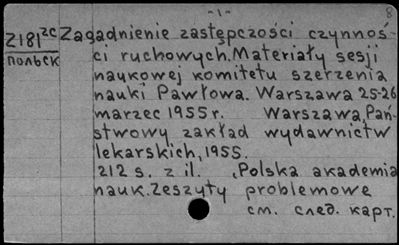 -1-
8
Z181 2c Zagadnienie zastępczości czynnoś-
польск ci ruchowych. Materiały sesji
naukowej komitetu szerzenia
nauki Pawłowa. Warszawa 25-26
marzec 1955 r. Warszawa, Pań-
stwowy zakład wydawnictw
lekarskich, 1955.
212 s. z il. , Polska akademia
nauk. Zeszyty problemowe
см. след. карт.